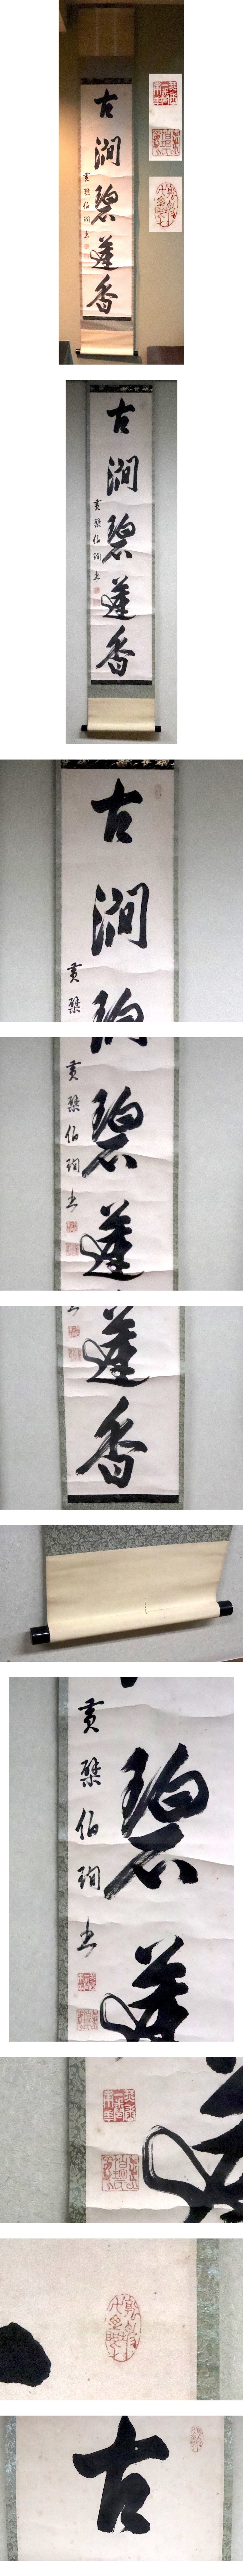 古澗碧蓮香
黄檗伯珣書